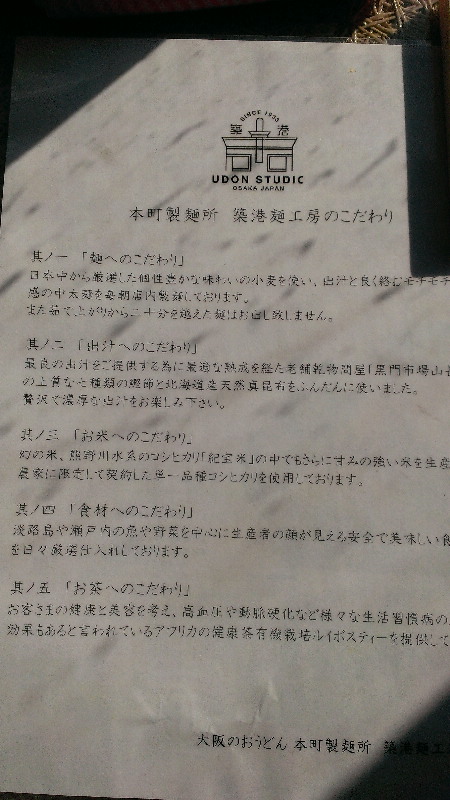 SINCE 1933
築港
UDON STUDIO
OSAKA JAPAN
本町製麺所 築港麺工房のこだわり
其ノ一 「麺へのこだわり」
日本中から厳選した個性豊かな味わいの小麦を使い、出汁と良く絡むモチモチ
感の中太麺を毎朝店内製麺しております。
また茹で上がりから二十分を越えた麺はお出し致しません。
其ノ二 「出汁へのこだわり」
最良の出汁をご提供する為に厳選な熟成を経た老舗乾物問屋「黒門市場山
の上質な七種類の鰹節と北海道産天然真昆布をふんだんに使いました。
贅沢で濃厚な出汁をお楽しみ下さい。
其ノ三 「お米へのこだわり」
幻の米、熊野川水系のコシヒカリ「紀宝米」の中でもさらに甘みの強い米を生産
農家に限定して契約した単一品種コシヒカリを使用しております。
其ノ四 「食材へのこだわり」
淡路島や瀬戸内の魚や野菜を中心に生産者の顔が見える安全で美味しい食
を日々厳選仕入れしております。
其ノ五 「お茶へのこだわり」
お客さまの健康と美容を考え、高血圧や動脈硬化など様々な生活習慣病の
効果もあると言われているアフリカの健康茶有機栽培ルイボスティーを提供して
大阪のおうどん 本町製麺所 築港麺工